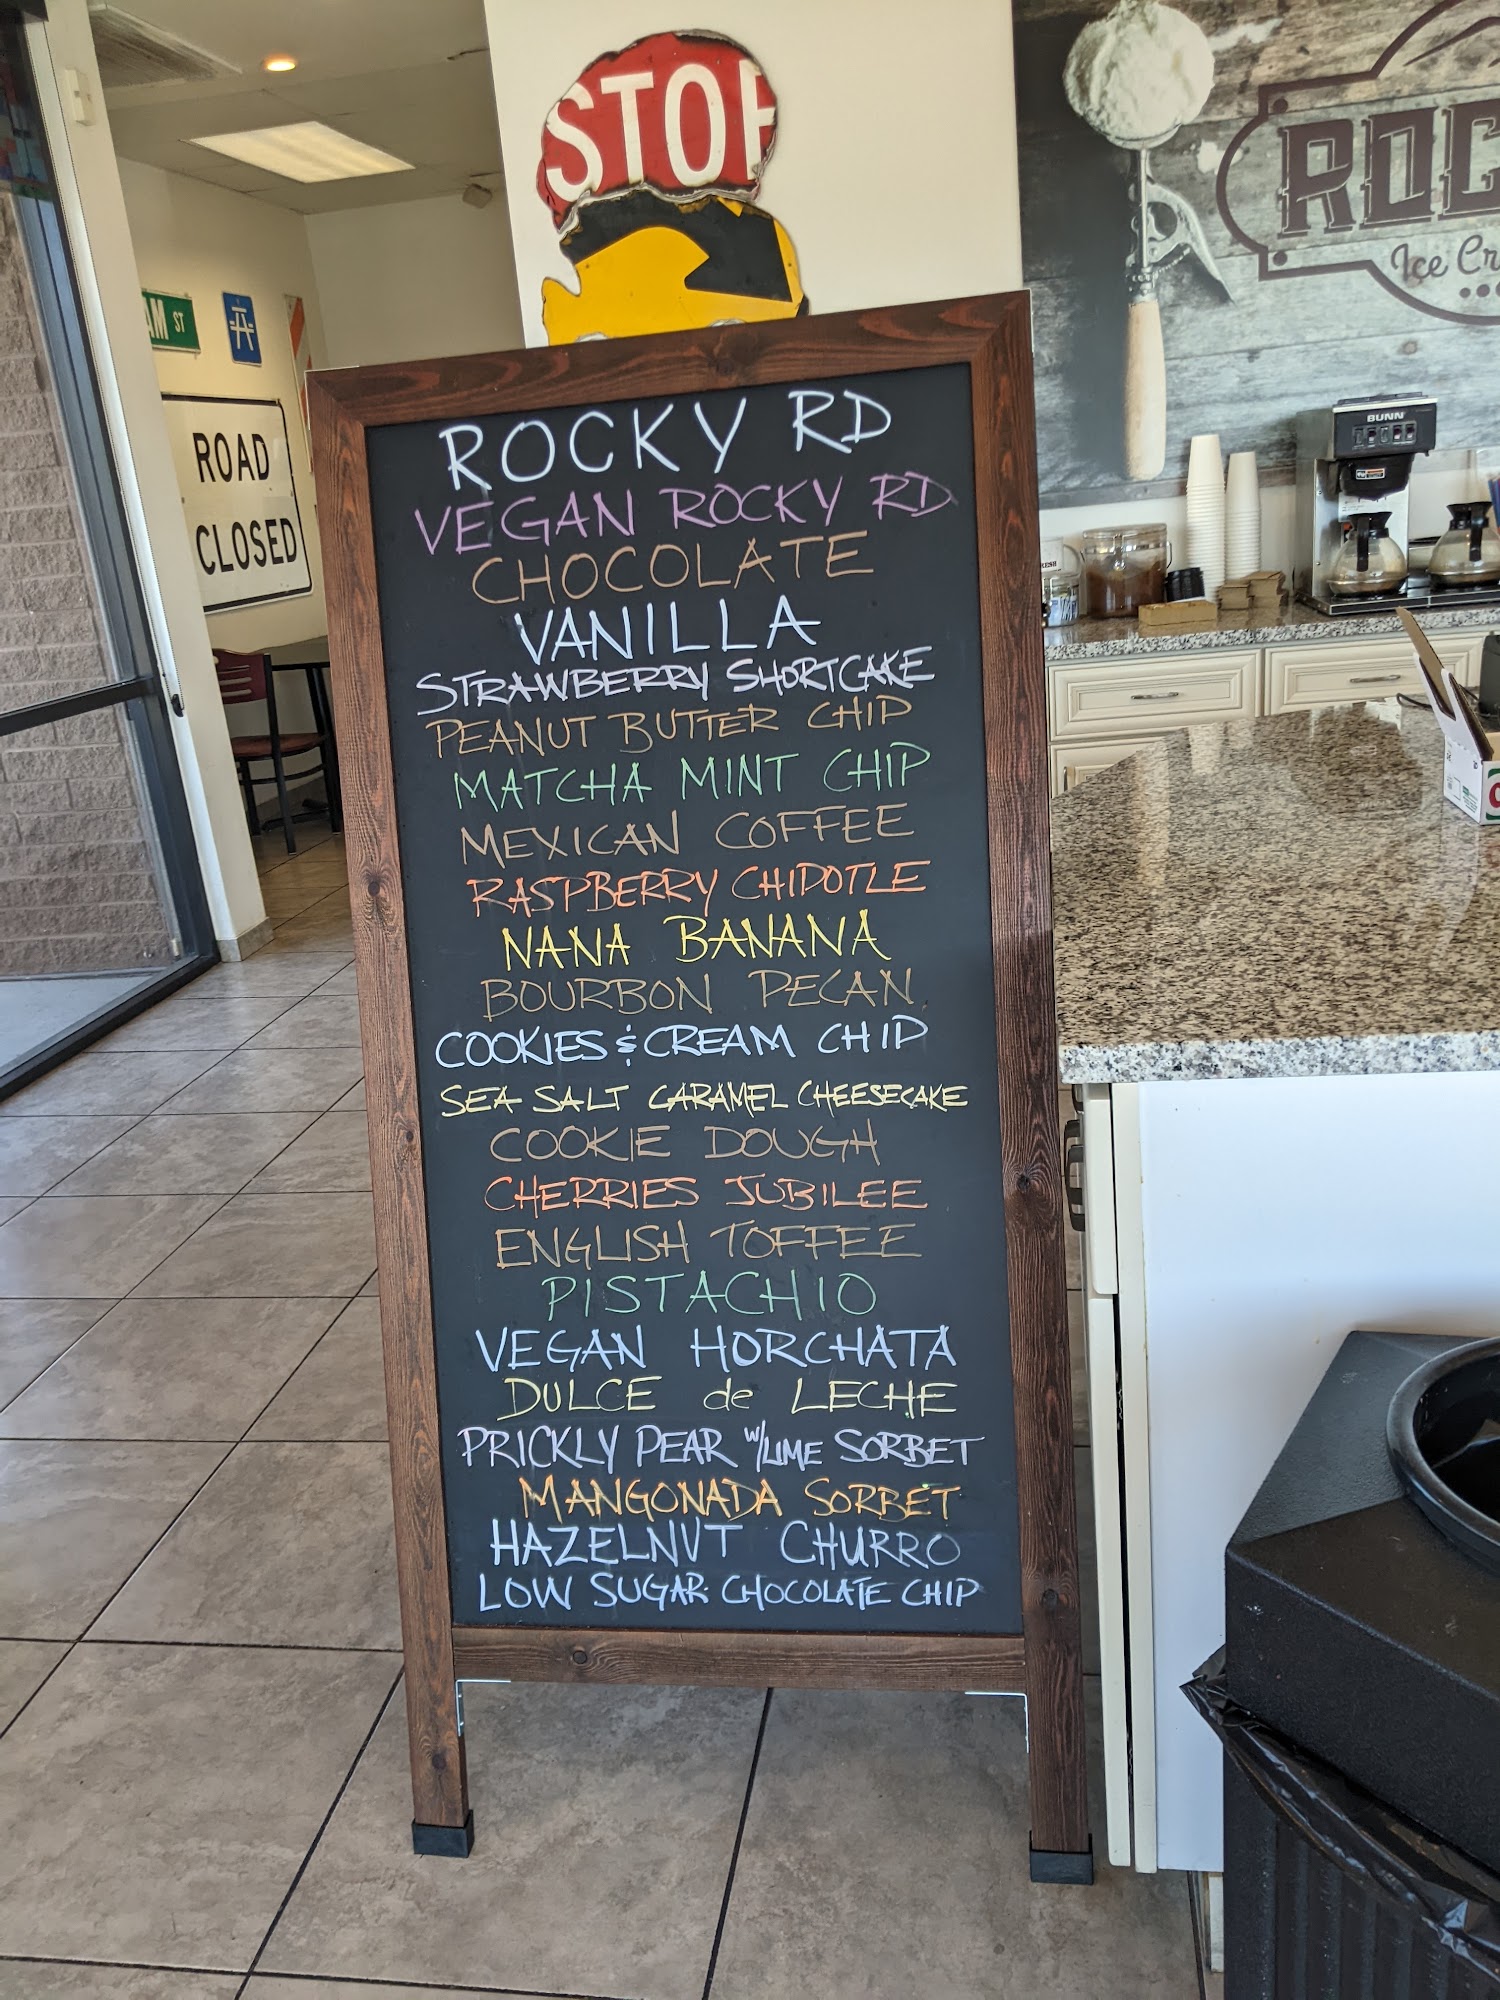 STOP
AM ST
ROAD
CLOSED
ROC
Ice Cr
BUNN
ROCKY RD
VEGAN ROCKY RD
CHOCOLATE
VANILLA
STRAWBERRY SHORTCAKE
PEANUT BUTTER CHIP
MATCHA MINT CHIP
MEXICAN COFFEE
RASPBERRY CHIPOTLE
NANA BANANA
BOURBON PECAN
COOKIES & CREAM CHIP
SEA SALT CARAMEL CHEESECAKE
COOKIE DOUGH
CHERRIES JUBILEE
ENGLISH TOFFEE
PISTACHIO
VEGAN HORCHATA
DULCE de LECHE
PRICKLY PEAR w/LIME SORBET
MANGONADA SORBET
HAZELNUT CHURRO
LOW SUGAR CHOCOLATE CHIP